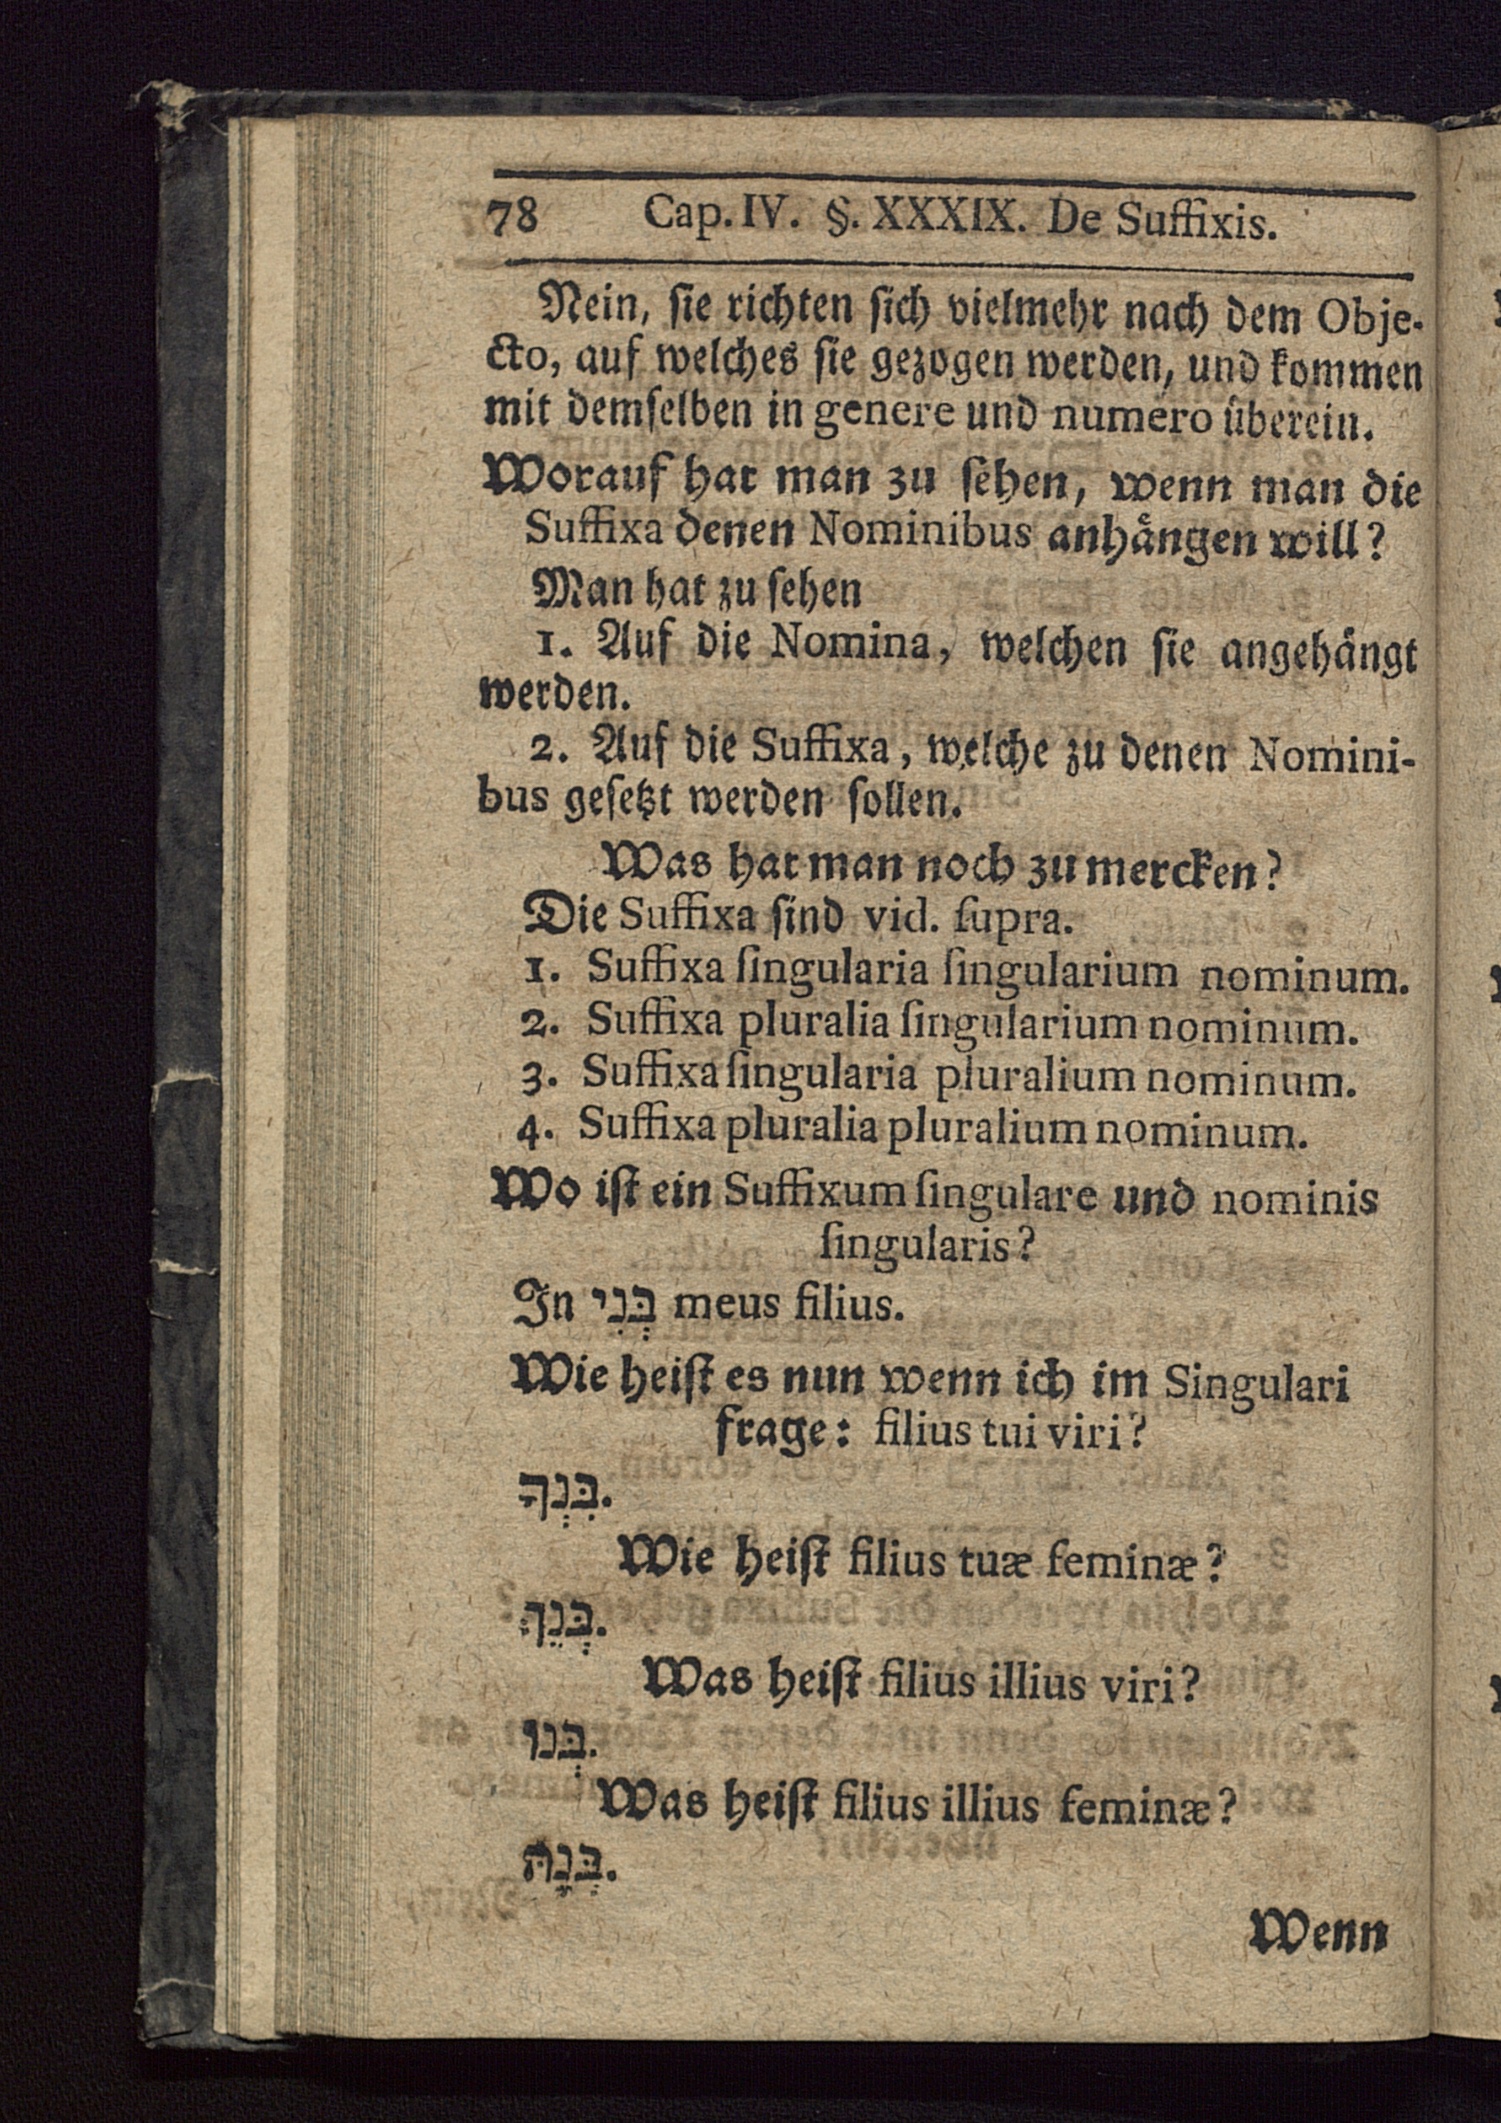 78 Cap. IV. §. XXXIX. De Suffixis.
Nein, ſie richten ſich vielmehr nach dem Obje-
cto, auf welches ſie gezogen werden, und kommen
mit demſelben in genere und numero überein.
Worauf hat man zu ſehen, wenn man die
Suffixa denen Nominibus anhängen will?
Man hat zu ſehen
1. Auf die Nomina, welchen ſie angehängt
werden.
2. Auf die Suffixa, welche zu denen Nomini-
bus geſetzt werden ſollen.
Was hat man noch zu mercken?
Die Suffixa ſind vid. ſupra.
1. Suffixa ſingularia ſingularium nominum.
2. Suffixa pluralia ſingularium nominum.
3. Suffixa ſingularia pluralium nominum.
4. Suffixa pluralia pluralium nominum.
Wo iſt ein Suffixum ſingulare und nominis
ſingularis?
In בְּנִי meus filius.
Wie heiſt es nun wenn ich im Singulari
frage: filius tui viri?
בִּנְךָ.
Wie heiſt filius tuæ feminæ?
בְּנֵךְ.
Was heiſt filius illius viri?
בְּנוֹ.
Was heiſt filius illius feminæ?
בְּנָהּ.
Wenn